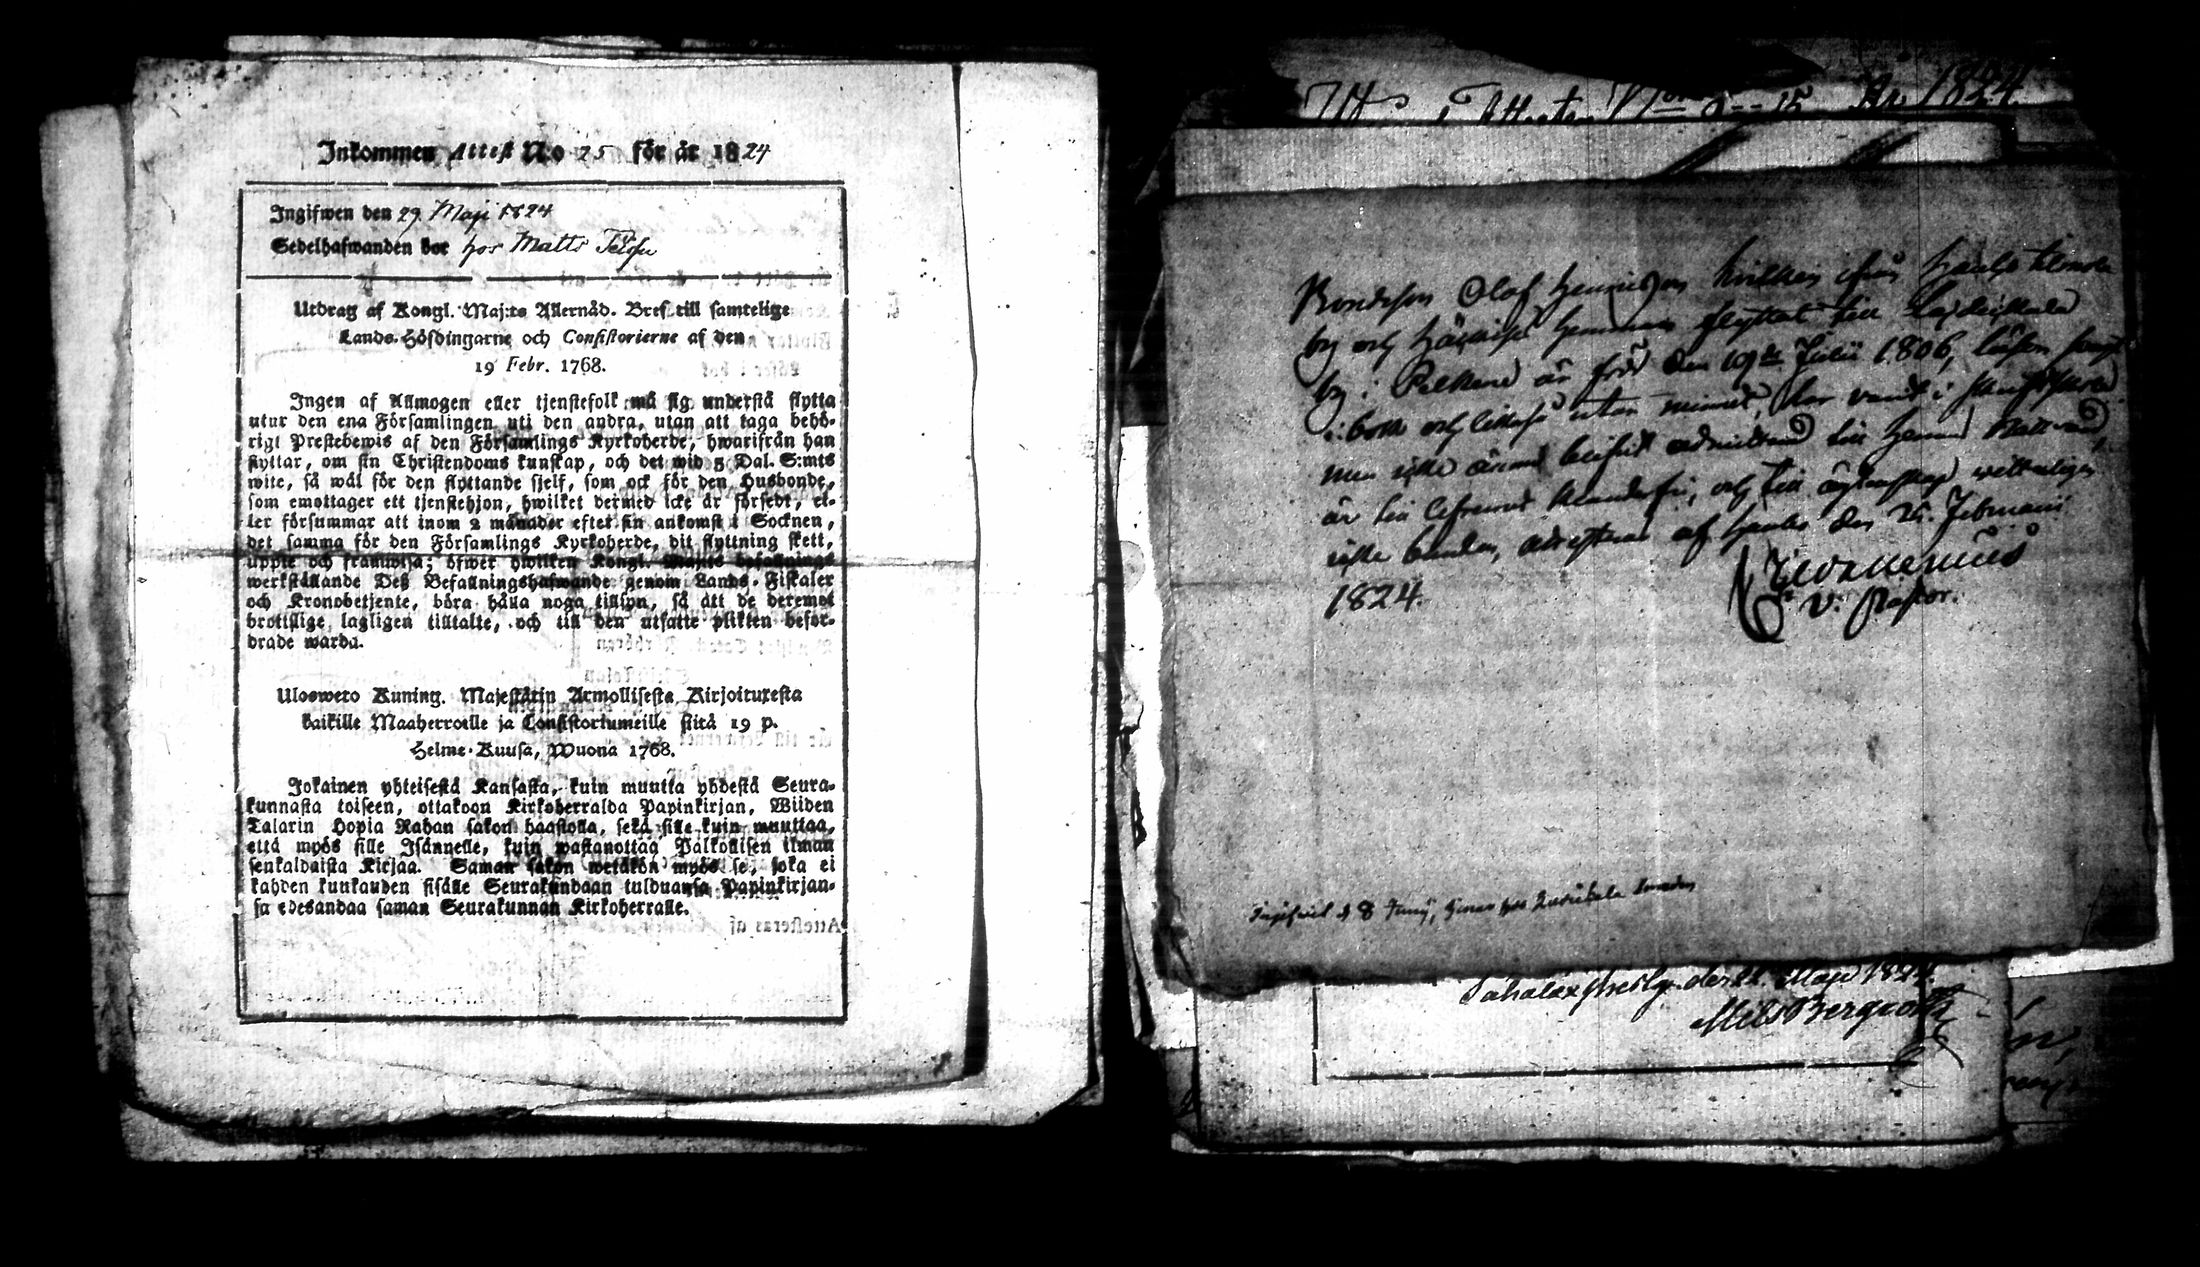 Inkommen Attest No 25 för år 1824
Ingifwen den 29. Maji 1824
Sedelhafwanden bor hos Matts
Utdrag af Kongl. Maj:ts Allernåd. Bref till samtelige
Lands-Höfdingarne och Consistorierne af den
19 Febr. 1768.
Ingen af Allmogen eller tjenstefolk må sig understå flytta
utur den ena Församlingen uti den andra, utan att taga behö-
rigt Prestebewis af den Församlings Kyrkoherde, hwarifrån han
flyttar, om sin Christendoms kunskap, och det wid 5 Dal. S:mts
wite, så wäl för den flyttande sjelf, som ock för den Husbonde,
som emottager ett tjenstehjon, hwilket dermed icke är försedt, el-
ler försummar att inom 2 månader efter sin ankomst i Socknen,
det samma för den Församlings Kyrkoherde, dit flyttning skett,
uppte och framwisa; öfwer hwilken Kongl. Maj:ts befallnings
werkställande Deß Befallningshafwande genom Lands-Fiskaler
och Kronobetjente, böra hålla noga tillsyn, så att de deremot
brottslige lagligen tilltalte, och till den utsatte plikten befor-
drade warda.
Ulosweto Kuning. Majestätin Armollisesta Kirjoituxesta
kaikille Maaherroille ja Consistoriumeille siitä 19 p.
Helme-Kuusa, Wuona 1768.
Jokainen yhteisestä Kansasta, kuin muutta yhdestä Seura-
kunnasta toiseen, ottakoon Kirkoherralda Papinkirjan, Wiiden
Talarin Hopia Rahan sakon haastolla, sekä sille kuin muuttaa,
että myös sille Isännelle, kuin wastanottaa Palkollisen ilman
senkaldaista Kirjaa. Saman sakon wetäkön myös se, joka ei
kahden kuukauden sisälle Seurakundaan tulduansa Papinkirjan-
sa edesandaa saman Seurakunnan Kirkoherralle.
Attesteras af
Attester 15 År 1824
Bondeson Olof Henricson hvilken ifrån Hauho
by och hemman flyttat till
by i Pelkene är född den 19de Julii 1806, läser
i bok och utan minnet, har varit i
men icke ännu admitterad till Herrens Nattvard,
är till lefvernet, och till ägtenskap vetterligen
icke bunden, attesteras af Hauho den 25. Februarii
1824.
V. Pastor.
Ingifwit d 8 Junij,
Sahalax den 22. Maji 1824
Nils Bergroth